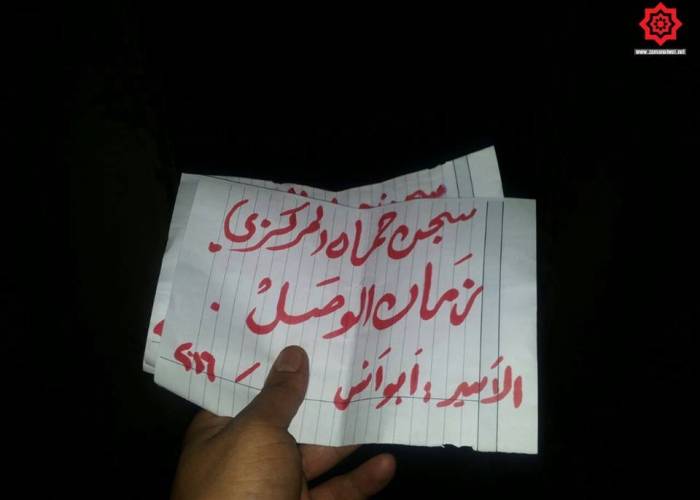 www.zamanalwsl.net
سجن حماه المركزي
زمان الوصل .
الأسير : أبو أنس / ٢٠١٦